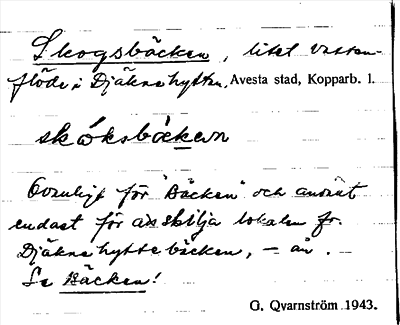 Skogsbäcken, litet vatten-
flöde i Djäknehyttan, Avesta stad, Kopparb. l.
skóksbäckern
Ovanligt för "Bäcken" och använt
endast för att skilja lokalen fr.
Djäknehyttebäcken, – ån.
Se Bäcken!
G. Qvarnström 1943.